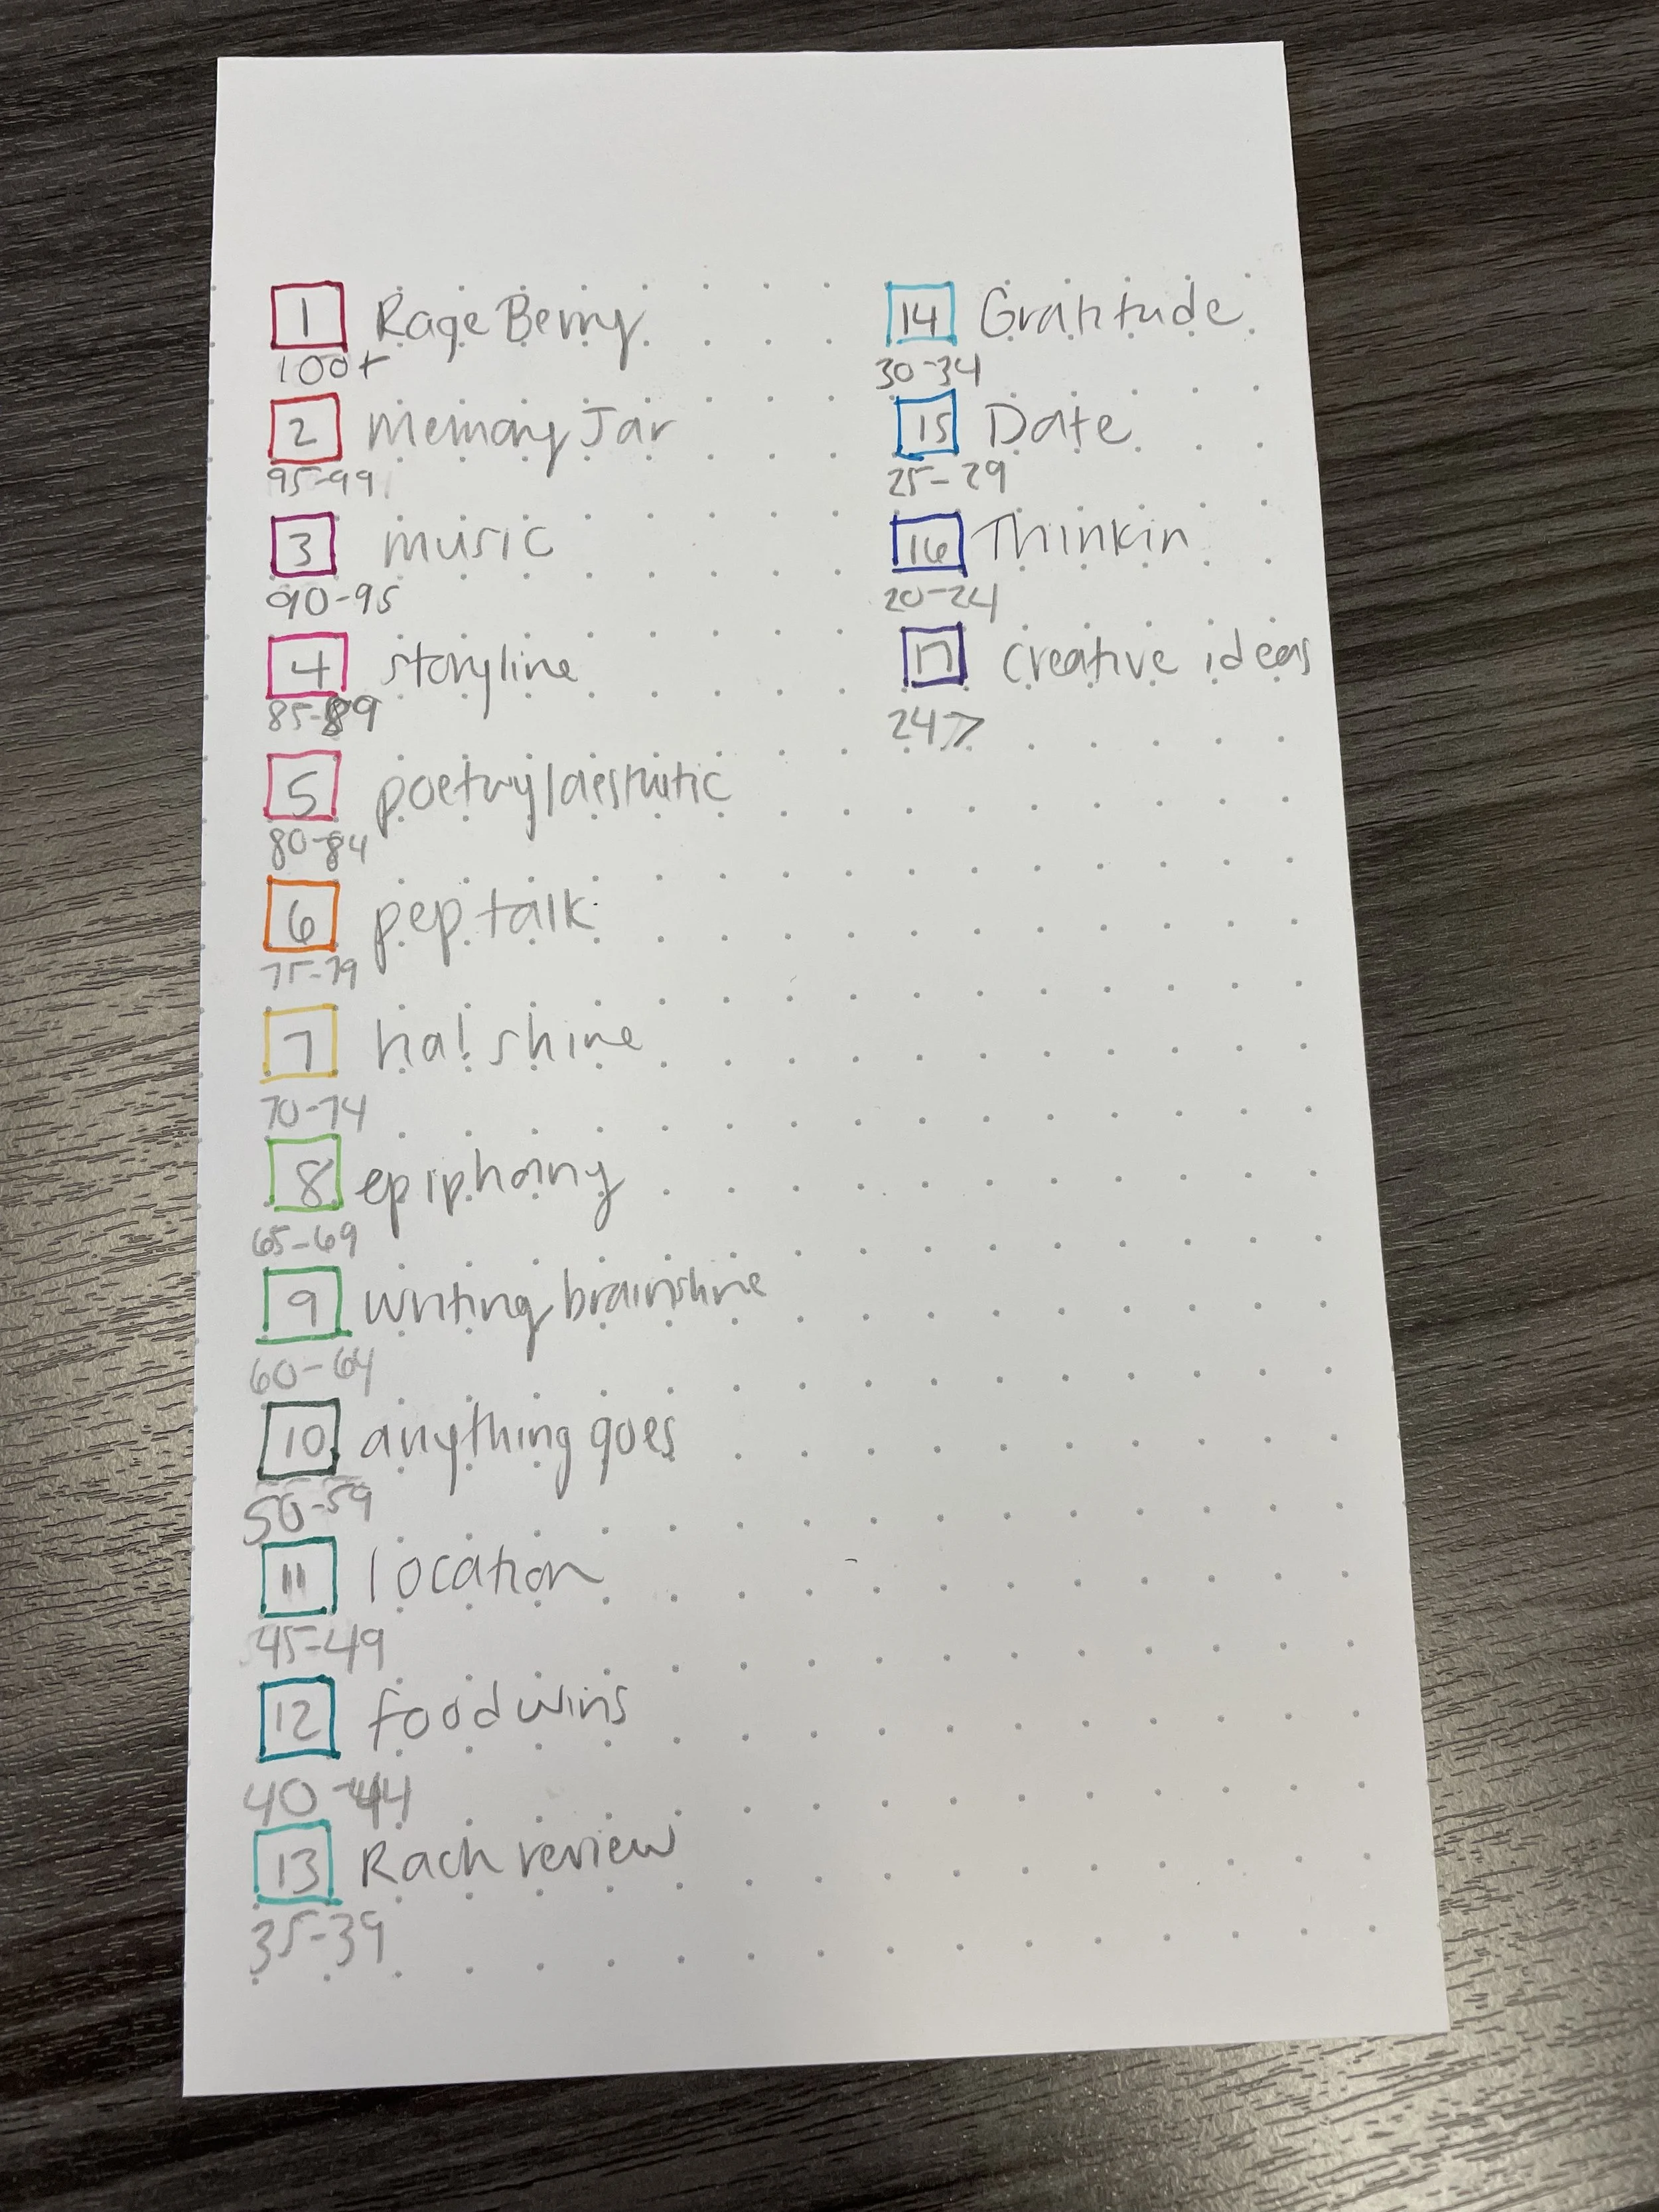 1 Rage Berry
100+
2 Memory Jar
95-99
3 music
90-95
4 storyline
85-89
5 poetry/aesthetic
80-84
6 pep talk
75-79
7 ha! shine
70-74
8 epiphany
65-69
9 writing brainshine
60-64
10 anything goes
50-59
11 location
45-49
12 food wins
40-44
13 Rach review
35-39
14 Gratitude
30-34
15 Date
25-29
16 Thinkin
20-24
17 creative ideas
24>